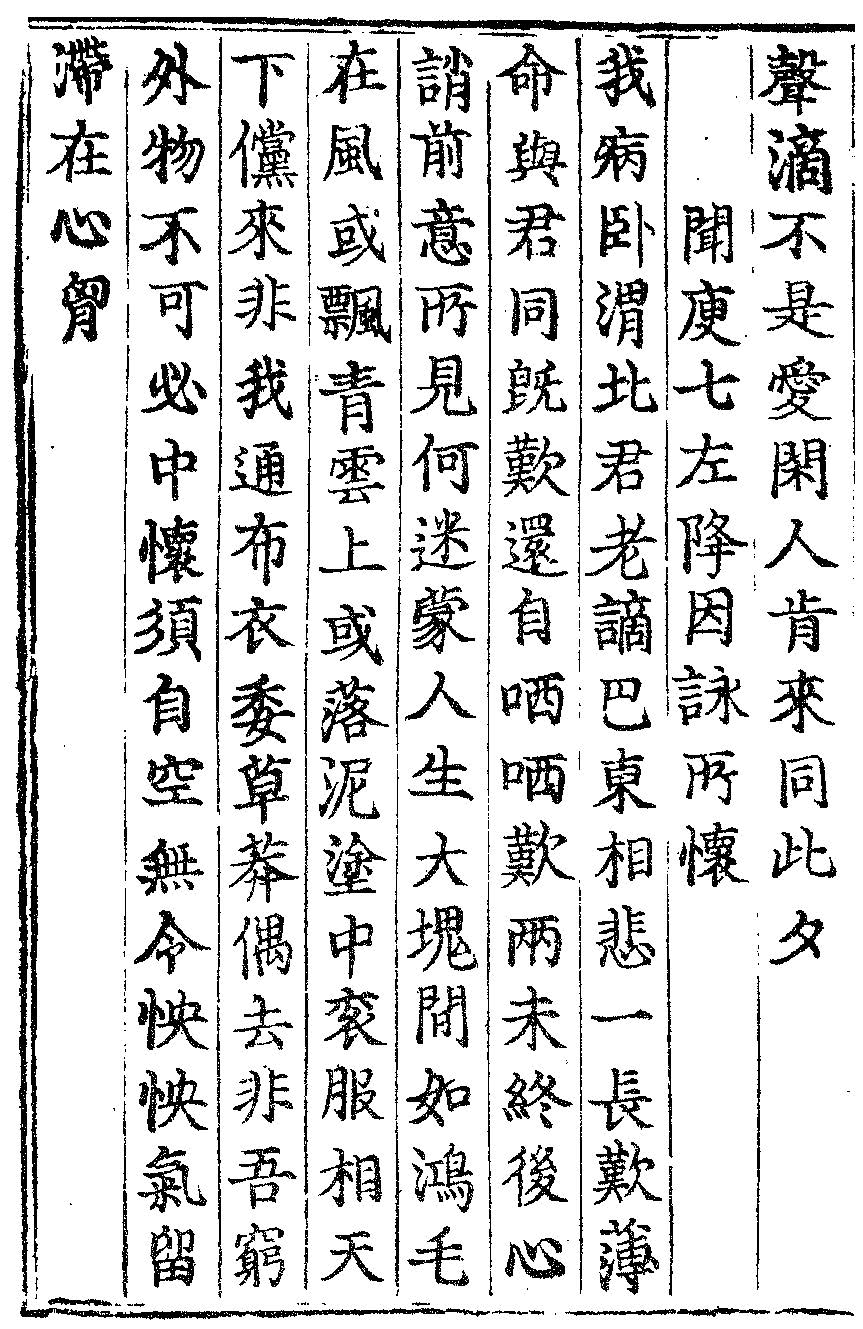 聲滴不是愛閑人肯來同此夕
聞庾七左降因詠所懷
我病卧渭北君老謫巴東相悲一長歎薄
命與君同旣歎還自哂哂歎兩未終後心
誚前意所見何迷蒙人生大塊間如鴻毛
在風或飄青雲上或落泥塗中衮服相天
下儻來非我通布衣委草莽偶去非吾窮
外物不可必中懷須自空無令怏怏氣留
滯在心胷